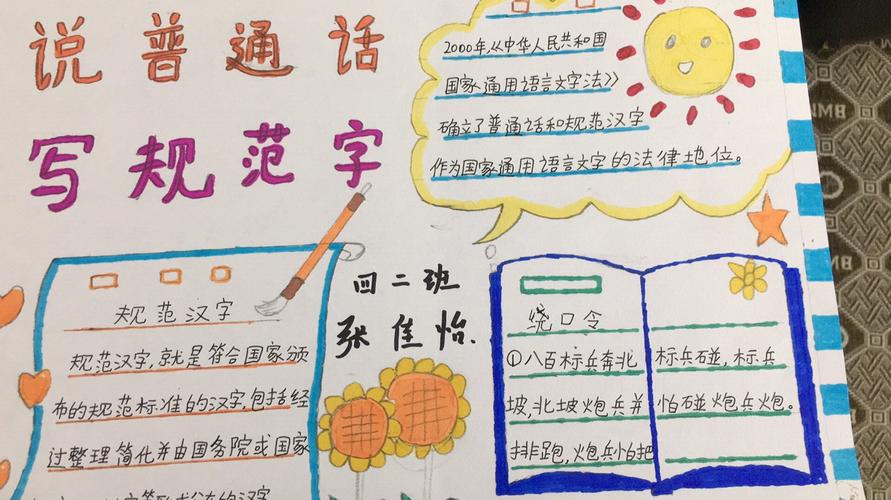 说普通话
写规范字
2000年,从中华人民共和国
国家通用语言文字法》
确立了普通话和规范汉字
作为国家通用语言文字的法律地位。
规范汉字
规范汉字,就是符合国家颁
布的规范标准的汉字,包括经
过整理简化并由国务院或国家
的汉字
四二班
张佳怡.
绕口令
①八百标兵奔北
坡,北坡炮兵并
排跑,炮兵怕把
标兵碰,标兵
怕碰炮兵炮。